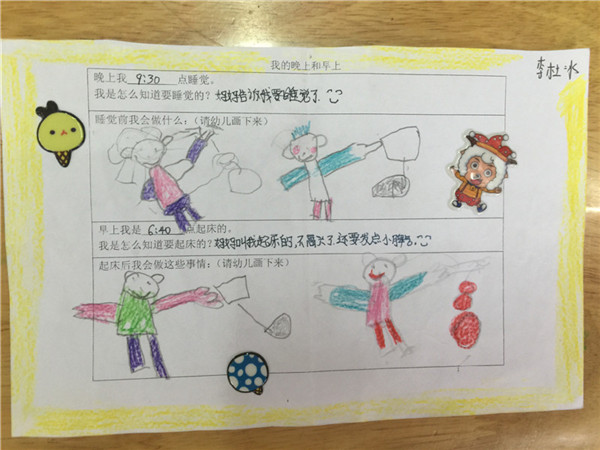 我的晚上和早上
李杜冰
晚上我 9:30 点睡觉。
我是怎么知道要睡觉的？妈妈告诉我要睡觉了.
睡觉前我会做什么：（请幼儿画下来）
早上我是 6:40 点起床的。
我是怎么知道要起床的？妈妈叫我起床的,不同意了.还要发点小脾气.
起床后我会做这些事情：（请幼儿画下来）